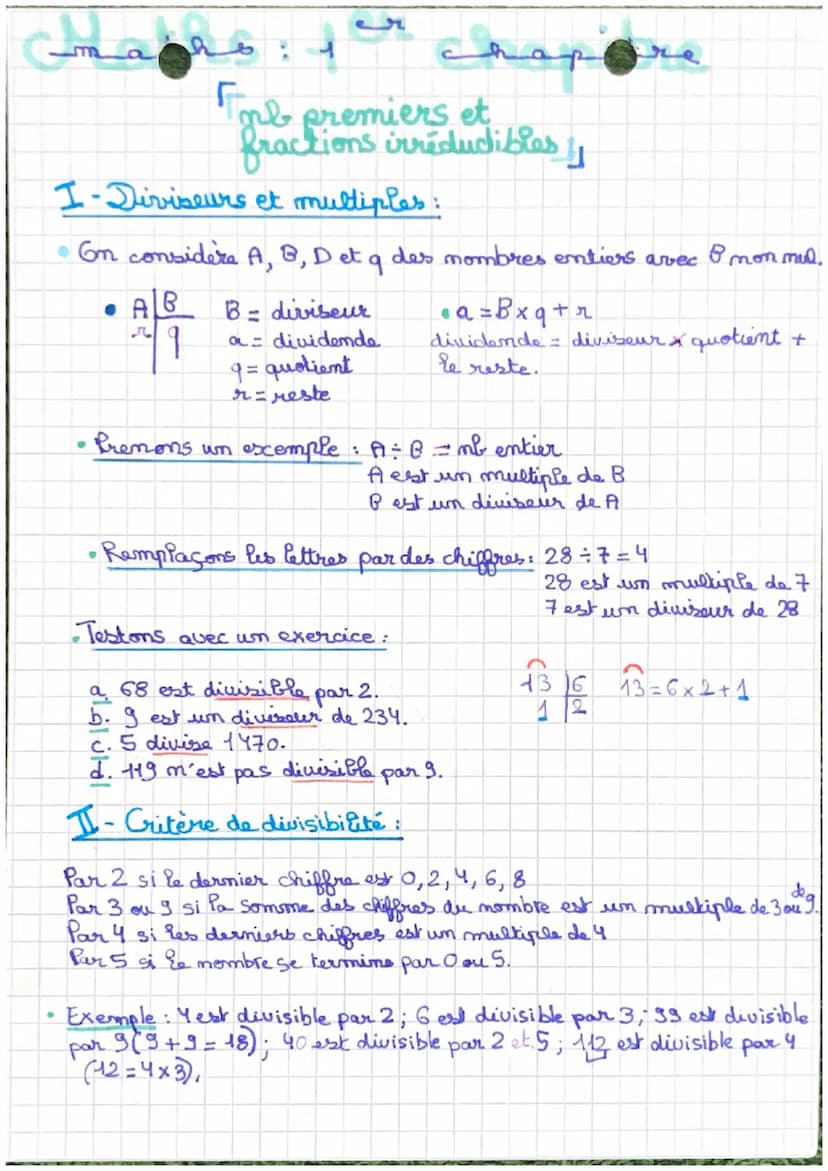 Maths : 1er chapitre
「nb premiers et
fractions irréductibles」
I - Diviseurs et multiples :
• On considère A, B, D et q des nombres entiers avec B non nul.
• A | B B = diviseur • a = B x q + r
r | q a = dividende dividende = diviseur x quotient +
q = quotient le reste.
r = reste
• Prenons un exemple : A ÷ B = nb entier
A est un multiple de B
B est un diviseur de A
• Remplaçons les lettres par des chiffres : 28 ÷ 7 = 4
28 est un multiple de 7
7 est un diviseur de 28
• Testons avec un exercice :
a. 68 est divisible par 2. 13 | 6 13 = 6 x 2 + 1
b. 9 est un diviseur de 234. 1 | 2
c. 5 divise 1470.
d. 119 n'est pas divisible par 9.
II - Critère de divisibilité :
Par 2 si le dernier chiffre est 0, 2, 4, 6, 8
Par 3 ou 9 si la somme des chiffres du nombre est un multiple de 3 ou de 9.
Par 4 si les derniers chiffres est un multiple de 4
Par 5 si le nombre se termine par 0 ou 5.
• Exemple : 4 est divisible par 2 ; 6 est divisible par 3 ; 99 est divisible
par 9 (9 + 9 = 18) ; 40 est divisible par 2 et 5 ; 112 est divisible par 4
(12 = 4 x 3).